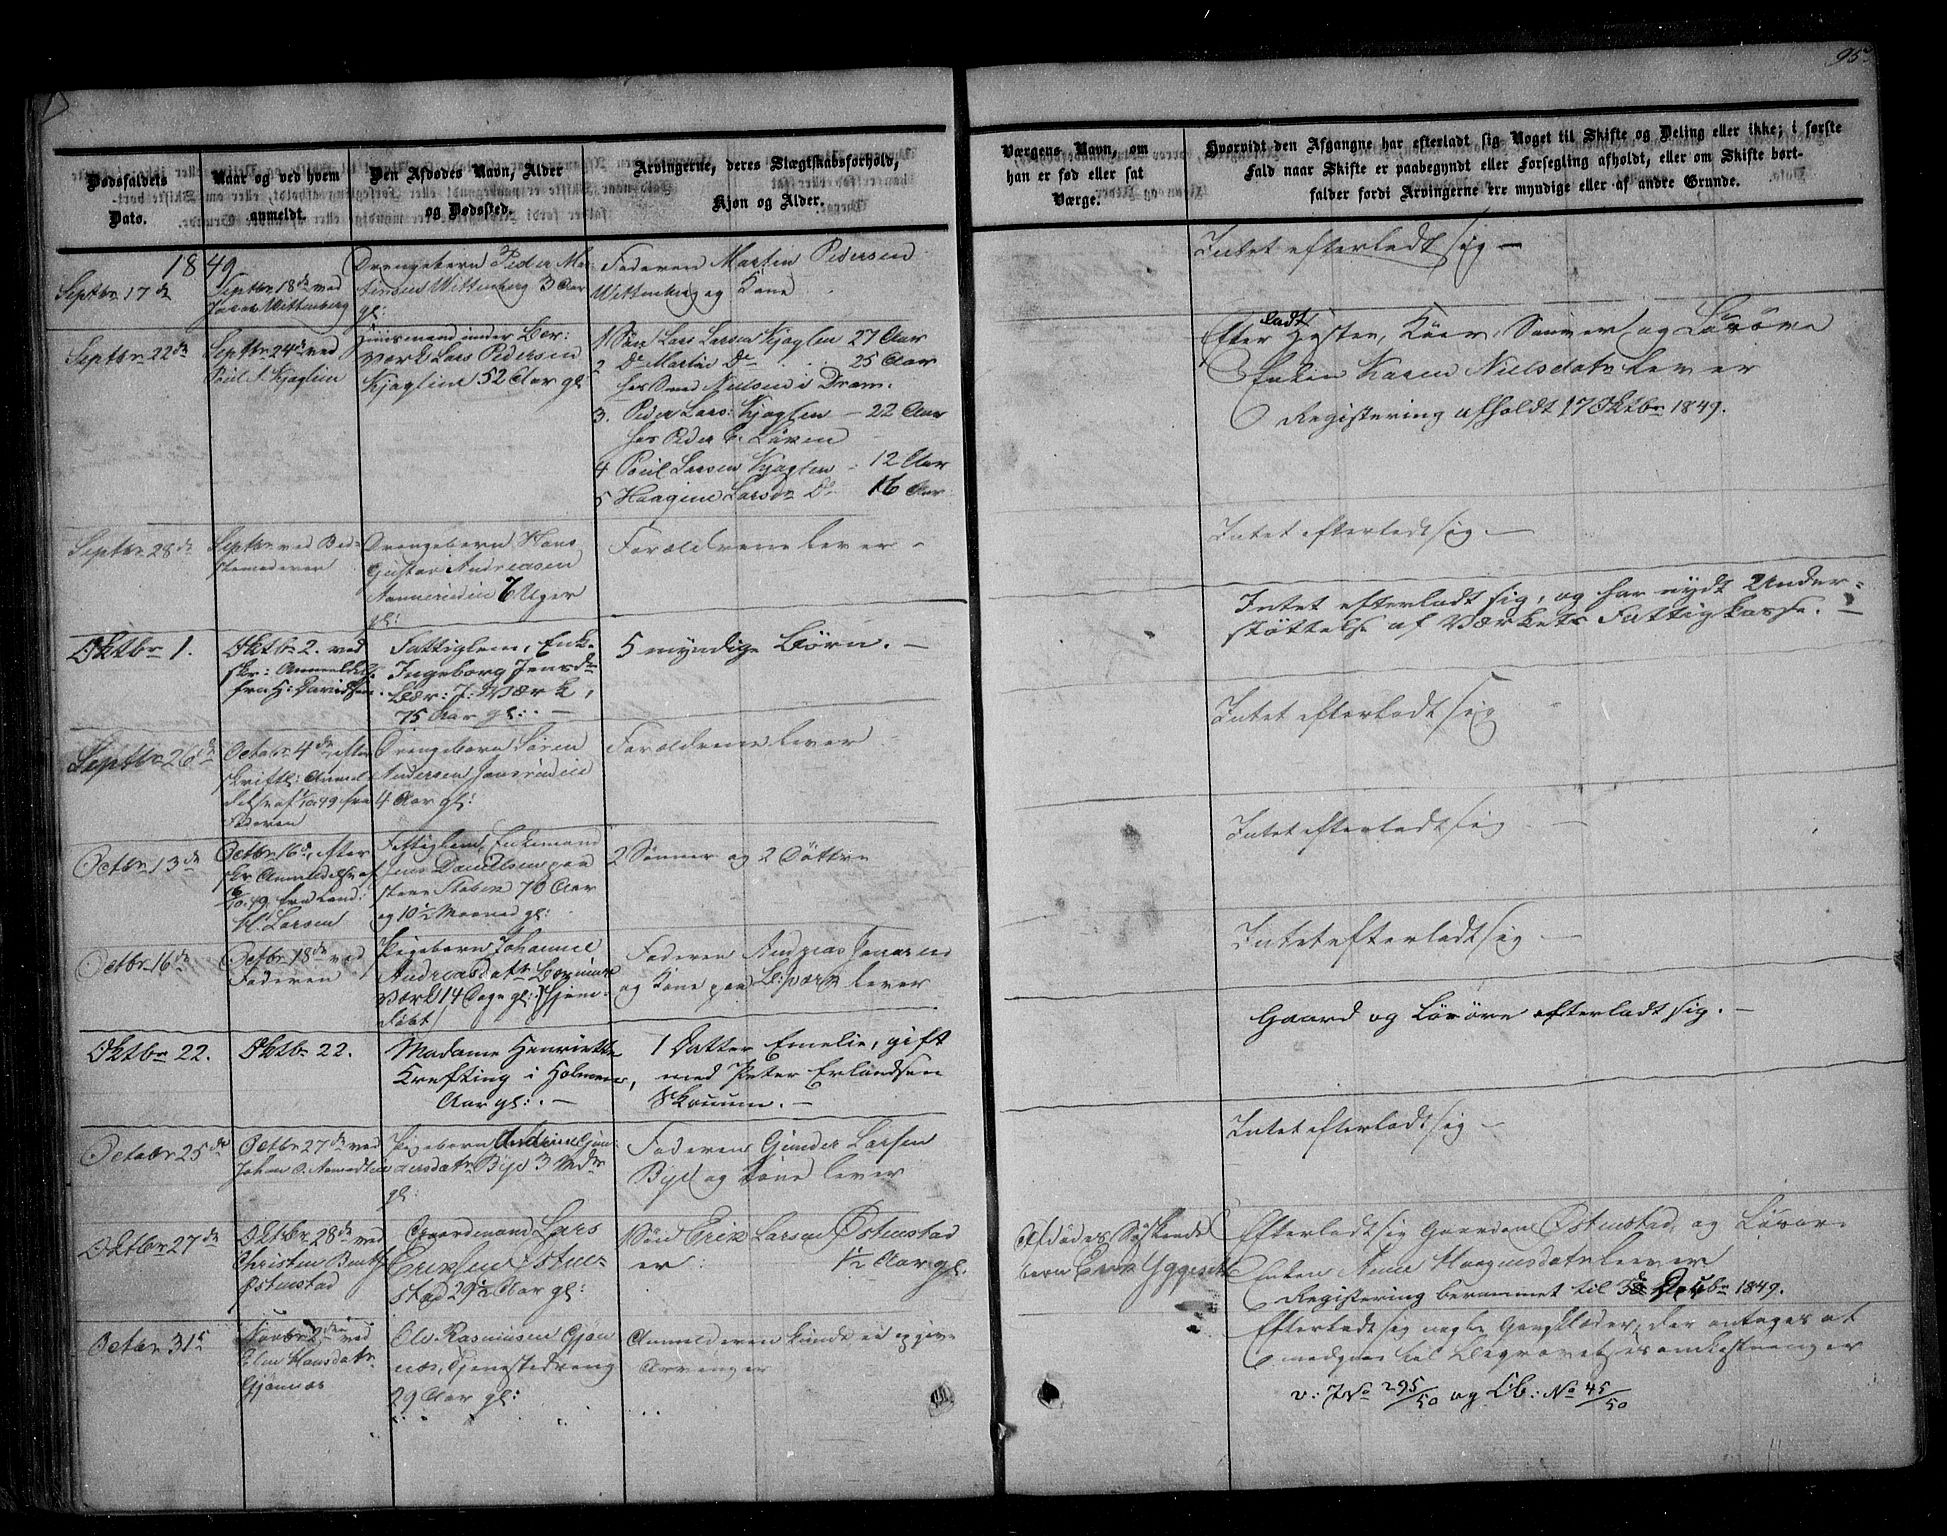 95.
Dødsfaldets
Dato.
Naar og ved hvem
anmeldt.
Den Afdødes Navn, Alder
og Dødssted.
Arvingerne, deres Slægtskabsforhold,
Kjøn og Alder.
Værgens Navn, om
han er fød eller sat
Værge.
Hvorvidt den Afgangne har efterladt sig Noget til Skifte og Deling eller ikke; i første
Fald naar Skifte er paabegyndt eller Forsegling afholdt, eller om Skifte bort-
falder fordi Arvingerne ere myndige eller af andre Grunde.
1849
Septbr 17de
Septbr 18de ved
Wittenberg
Drengebarn Peder Mar-
tinsen Wittenberg 3 Aar
gl:
Faderen Martin Pedersen
Wittenberg og Kone
Intet efterladt sig —
Septbr 22de
Septbr 24de ved
Poul Kjaglien
Huusmand under Bær:
Værk Lars Pedersen
Kjaglien 52 Aar gl:
1 Søn Lars Larsen Kjaglen 27 Aar
2 Do Martin Do 25 Aar
hos Nielsen i Dram.
3. Peder Lars: Kjaglen — 22 Aar
hos Peder Løken
4 Poul Larsen Kjaglen - 12 Aar
5 Haagine Larsdr Do 16 Aar
Efterladt Hester, Køer, og Løsøre
Enken Karen Nielsdatr lever
Registering afholdt 17 Oktbr 1849.
Septbr 28de
Septbr ved Bed-
stemoderen
Drengebarn Hans
Gustav Andreasen
7 Uger
gl:
Forældrene lever —
Intet efterladt sig —
Oktbr 1.
Oktbr 2. ved
skr: Anmeldelse
fra H: Davidsen.
Fattiglem, Enke
Ingeborg Jensdr
Bær: J: Værk,
75 Aar gl: —
5 myndige Børn. —
Intet efterladt sig, og har nydt Under-
støttelse af Værkets Fattigkasse. —
Septbr 26de
Octobr 4de efter
skriftl: Anmel-
delse af 1/10 49 fra
Faderen
Drengebarn Søren
Andersen
4 Aar gl:
Forældrene lever
Intet efterladt sig
Octbr 13de
Octbr 16de, efter
skr Anmeldelse af
16/10.49. fra Lend:
H: Larsen
Fattiglem, Enkemand
Jens Danielsen paa
Staben 70 Aar
og 10½ Maaned gl:
2 Sønner og 2 Døttre
Intet efterladt sig
Octbr 16de
Octbr 18de ved
Faderen
Pigebarn Johanne
Andreasdatr Bærums
Værk 14 Dage gl: (hjem-
døbt)
Faderen Andreas
og Kone paa B: Værk lever
Intet efterladt sig —
Oktbr 22.
Oktbr 22.
Madame Henriette
Krefting i Holmen,
Aar gl: —
1 Datter Emelie, gift
med Peter Erlandsen
Skouum. —
Gaard og Løsøre efterladt sig. —
Octobr 25de
Octbr 27de ved
Johan
Pigebarn Andrine Gun-
dersdatr Bye 3 Mdr
gl:
Faderen Gunder Larsen
Bye og Kone lever
Intet efterladt sig —
Oktbr 27de
Oktbr 28de ved
Christen
Østenstad
Gaardmand Lars
Eriksen Østen-
stad 29½ Aar gl:
1 Søn Erik Larsen Østenstad
er: 1½ Aar gl.
Afdødes Søskende-
barn
Efterladt sig Gaarden Østenstad, og Løsøre
Enken Anne Haagensdatr lever
Registering berammet til 3de Decbr 1849.
Octbr 31te
Novbr 2den ved
Hansdatr
Gjønnæs
Ole Rasmussen Gjøn-
næs, Tjenestedreng
29 Aar gl:
Anmelderen kunde ei opgive
Arvinger
Efterladt sig nogle Gangklæder, der antages at
medgaae til Begravelsesomkostninger
v: J No 295/50 og Cb: No 45/50